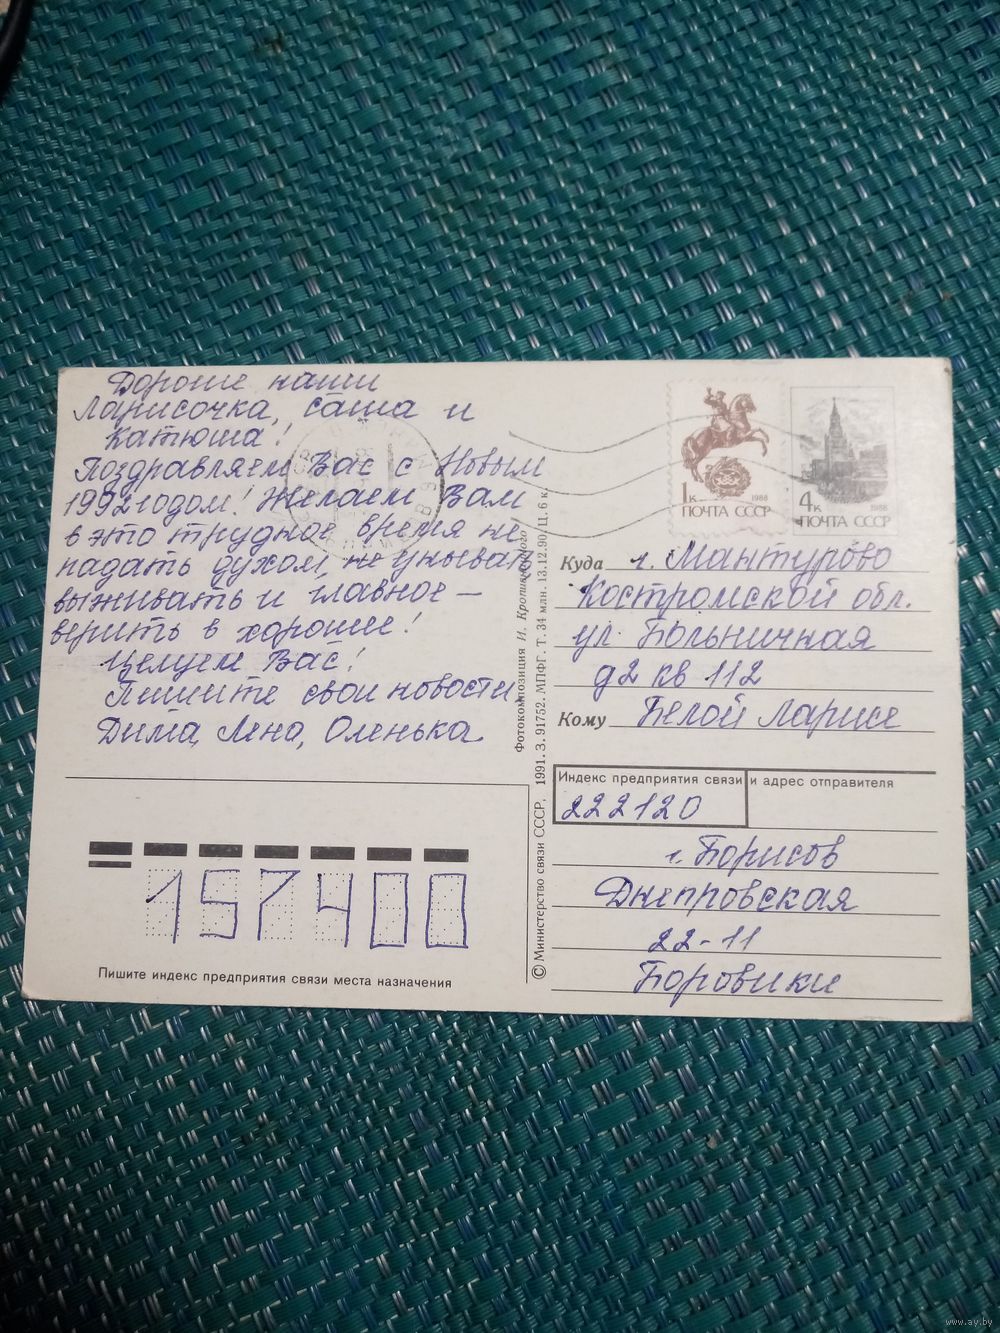 Дорогие наши
Ларисочка, Саша и
Катюша!
Поздравляем Вас с Новым
1992 годом! Желаем Вам
в это трудное время не
падать духом, не унывать
выживать и главное —
верить в хорошее!
Целуем Вас!
Пишите свои новости
Дима, Лена, Оленька
157400
Пишите индекс предприятия связи места назначения
© Министерство связи СССР, 1991. З. 91752. МПФГ. Т. 34 млн. 13.12.90. Ц. 6 к.
Фотокомпозиция И. Кропивницкого
1к
1988
ПОЧТА СССР
4к
1988
ПОЧТА СССР
Куда г. Мантурово
Костромской обл.
ул. Больничная
д2 кв 112
Кому Белой Ларисе
Индекс предприятия связи и адрес отправителя
222120
г. Борисов
Днепровская
22-11
Боровики
www.ay.by